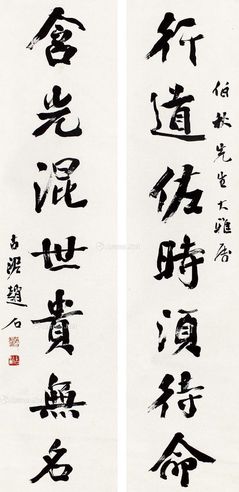 伯秋先生大雅屬
行道佐時須待命
含光混世貴無名
古泥趙石